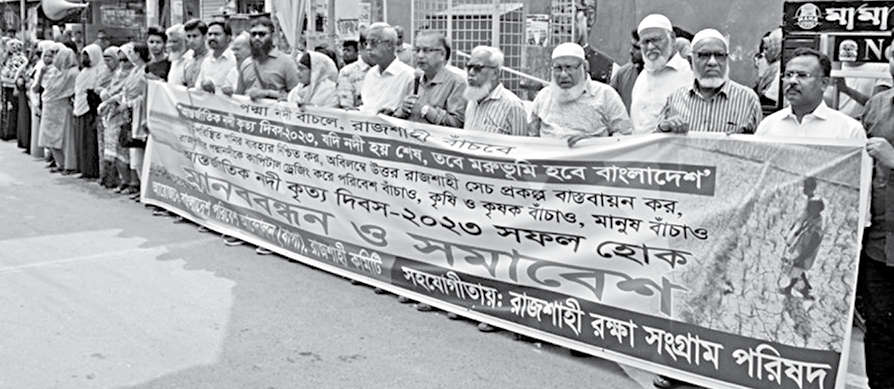 পদ্মা নদী বাঁচলে, রাজশাহী বাঁচবে
আন্তর্জাতিক নদী কৃত্য দিবস-২০২৩, যদি নদী হয় শেষ, তবে মরুভূমি হবে বাংলাদেশ'
পানির ব্যবহার নিশ্চিত কর, অবিলম্বে উত্তর রাজশাহী সেচ প্রকল্প বাস্তবায়ন কর,
ক্যাপিটাল ড্রেজিং করে পরিবেশ বাঁচাও, কৃষি ও কৃষক বাঁচাও, মানুষ বাঁচাও
আন্তর্জাতিক নদী কৃত্য দিবস-২০২৩ সফল হোক
মানববন্ধন ও সমাবেশ
বাংলাদেশ পরিবেশ আন্দোলন (বাপা), রাজশাহী কমিটি
সহযোগীতায়: রাজশাহী রক্ষা সংগ্রাম পরিষদ
মামা